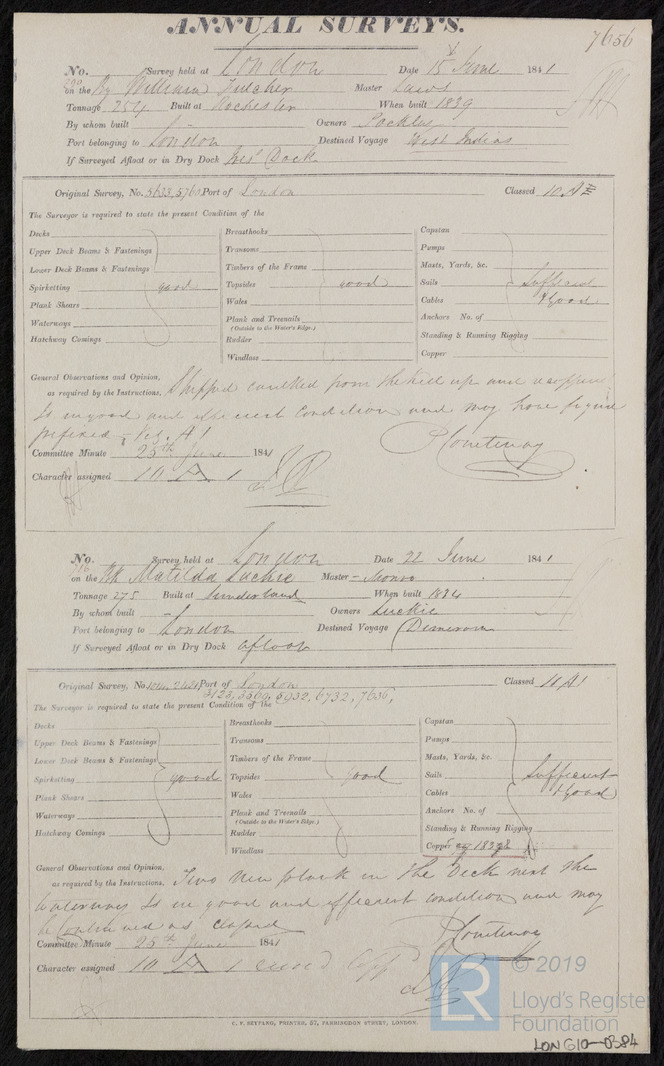 ANNUAL SURVEYS.
7656
No. Survey held at London Date 15 June 1841
on the Bg William Fulcher Master Laws
Tonnage 254 Built at Rochester When built 1839
By whom built - Owners
Port belonging to London Destined Voyage West Indies
If Surveyed Afloat or in Dry Dock Dock
Original Survey, No. 5633, Port of London Classed 10 A
The Surveyor is required to state the present Condition of the
Decks Breasthooks Capstan
Upper Deck Beams & Fastenings Transoms Pumps
Lower Deck Beams & Fastenings Timbers of the Frame Masts, Yards, &c.
Spirketting good Topsides good Sails Sufficient
Plank Shears Wales Cables & Good
Waterways Plank and Treenails Anchors No. of
(Outside to the Water's Edge.)
Hatchway Comings Rudder Standing & Running Rigging
Windlass Copper
General Observations and Opinion, Stripped caulked from the keel up and
as required by the Instructions. Is in good and efficient condition and may have figure
prefixed Viz. A1
Courtenay
Committee Minute 25th June 1841
Character assigned 10 A 1
No. Survey held at London Date 22 June 1841
716
on the Bk Matilda Luckie Master - Monro
Tonnage 275 Built at Sunderland When built 1834
By whom built - Owners Luckie
Port belonging to London Destined Voyage Demerara
If Surveyed Afloat or in Dry Dock afloat
Original Survey, No. 2421 Port of London Classed 10 A1
3123, 3569, 5932, 6732, 7636,
The Surveyor is required to state the present Condition of the
Decks Breasthooks Capstan
Upper Deck Beams & Fastenings Transoms Pumps
Lower Deck Beams & Fastenings Timbers of the Frame Masts, Yards, &c.
Spirketting good Topsides good Sails Sufficient
Plank Shears Wales Cables & Good
Waterways Plank and Treenails Anchors No. of
(Outside to the Water's Edge.)
Hatchway Comings Rudder Standing & Running Rigging
Windlass Copper
General Observations and Opinion, Two new plank in the Deck next the
as required by the Instructions. Waterways Is in good and efficient condition and may
be Continued as classed
Courtenay
Committee Minute 25th June 1841
Character assigned 10 A 1
C. F. SEYFANG, PRINTER, 57, FARRINGDON STREET, LONDON.
LR © 2019
Lloyd's Register
Foundation
LON610-0384